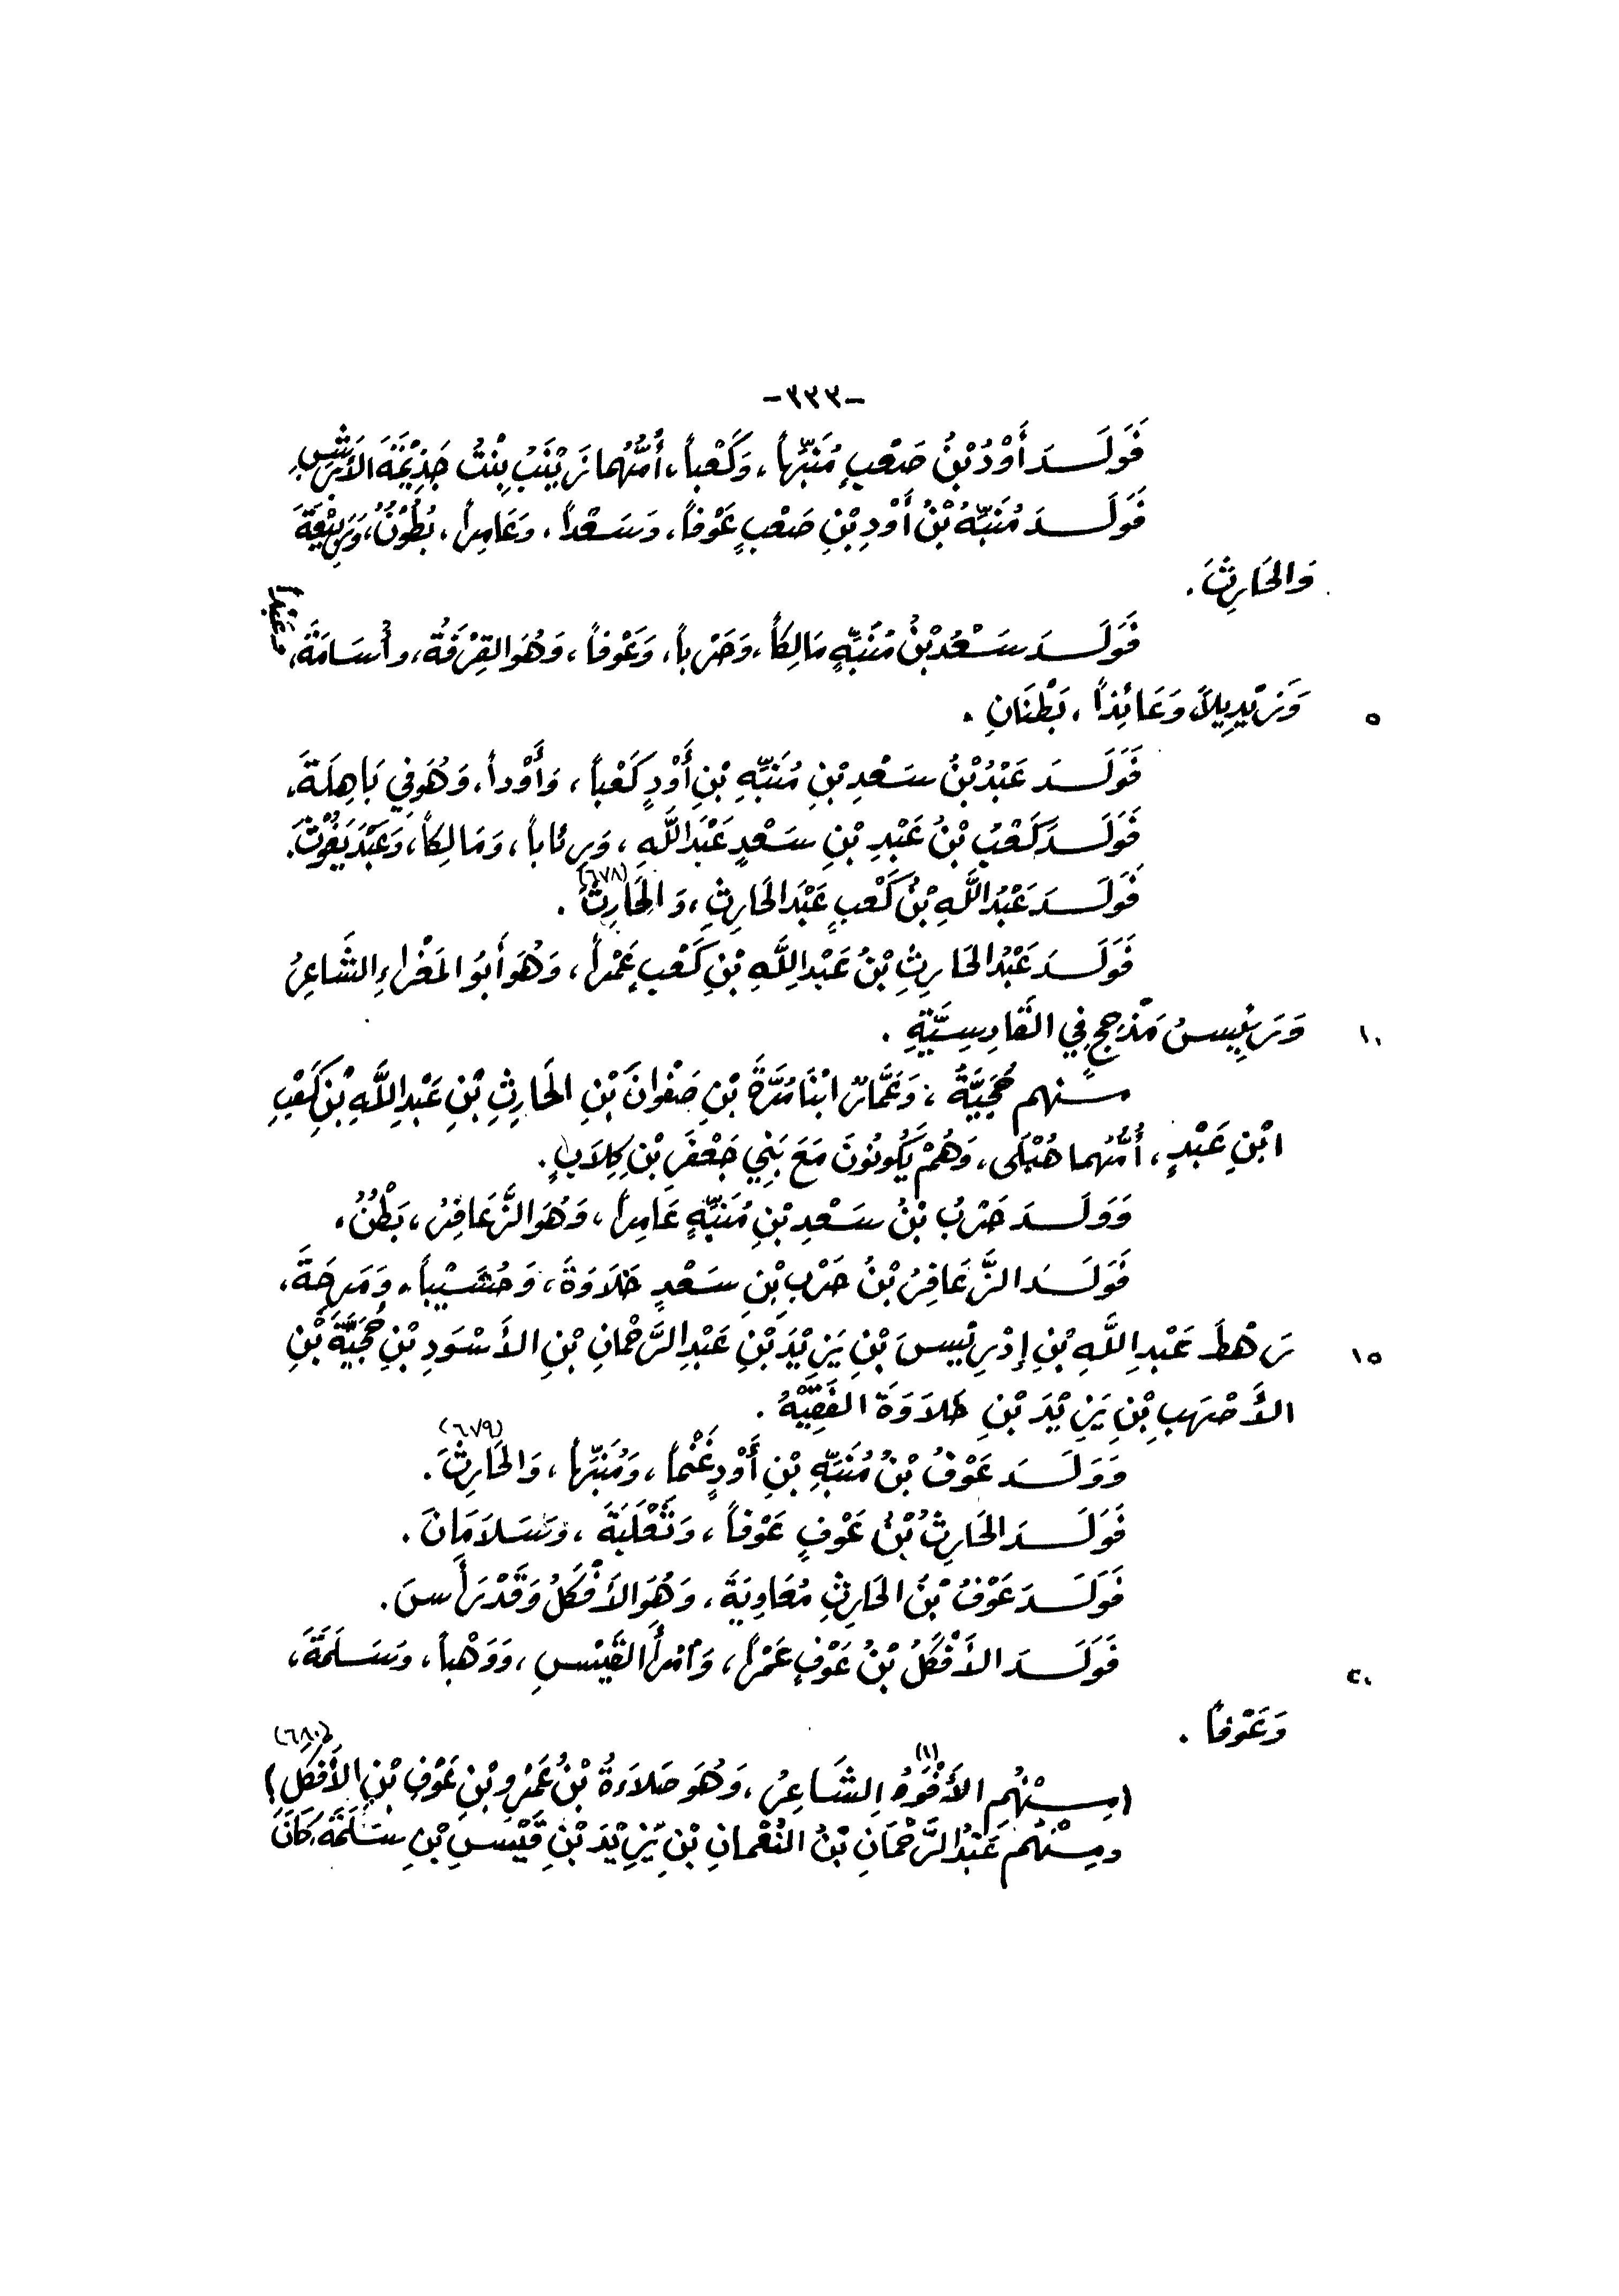 -٣٣٣-
فَوَلَدَ أَوْدُ بْنُ صَعْبٍ مُنَبِّهاً، وَكَعْباً، أُمُّهُما زَيْنَبُ بِنْتُ جَذِيْمَةَ الأَبْرَشِ.
فَوَلَدَ مُنَبِّهُ بْنُ أَوْدِ بْنِ صَعْبٍ عَوْفاً، وَسَعْداً، وَعَامِراً، بُطُوْنٌ، وَرَبِيْعَةَ
وَالحَارِثَ.
فَوَلَدَ سَعْدُ بْنُ مُنَبِّهٍ مَالِكاً، وَحَرْباً، وَعَوْفاً، وَهُوَ القِرْفَةُ، وأُسَامَةَ، وعَبْداً
٥ وَزَيْدِيلاً وَعَائِذاً، بَطْنَانِ.
فَوَلَدَ عَبْدُ بْنُ سَعْدِ بْنِ مُنَبِّهِ بْنِ أَوْدٍ كَعْباً، وَأَوْداً، وَهُوَ فِي بَاهِلَةَ.
فَوَلَدَ كَعْبُ بْنُ عَبْدِ بْنِ سَعْدٍ عَبْدَ اللَّهِ، وَرِئَاباً، وَمَالِكاً، وَعَبْدَ يَغُوْثَ.
فَوَلَدَ عَبْدُ اللَّهِ بْنُ كَعْبٍ عَبْدَ الحَارِثِ، وَالحَارِثَ (٦٧٨).
فَوَلَدَ عَبْدُ الحَارِثِ بْنُ عَبْدِ اللَّهِ بْنِ كَعْبٍ عَمْراً، وَهُوَ أَبُو المَغْرَاءِ الشَّاعِرُ
١٠ وَرَئِيسُ مَذْحِجٍ فِي القَادِسِيَّةِ.
منهم حُجَيَّةُ، وَعَمَّارٌ ابْنَا مُرَّةَ بْنِ صَفْوانَ بْنِ الحَارِثِ بْنِ عَبْدِ اللَّهِ بْنِ كَعْبِ
ابْنِ عَبْدٍ، أُمُّهُما هُبْلَى، وَهُمْ يَكُونُونَ مَعَ بَنِي جَعْفَرِ بْنِ كِلاَبٍ.
وَوَلَدَ حَرْبُ بْنُ سَعْدِ بْنِ مُنَبِّهٍ عَامِراً، وَهُوَ الزَّعَافِرُ، بَطْنٌ.
فَوَلَدَ الزَّعَافِرُ بْنُ حَرْبِ بْنِ سَعْدٍ حَلاَوَةَ، وَحُشَيْباً، وَمَرحَةَ،
١٥ رَهْطَ عَبْدِ اللَّهِ بْنِ إِدْرِيْسَ بْنِ يَزِيْدَ بْنِ عَبْدِ الرَّحْمانِ بْنِ الأَسْوَدِ بْنِ حُجَيَّةَ بْنِ
الأَصْهَبِ بْنِ يَزِيْدَ بْنِ حَلاَوَةَ الفَقِيْهُ.
وَوَلَدَ عَوْفُ بْنُ مُنَبِّهِ بْنِ أَوْدٍ غَنْماً، وَمُنَبِّهاً، وَالحَارِثَ (٦٧٩).
فَوَلَدَ الحَارِثُ بْنُ عَوْفٍ عَوْفاً، وَثَعْلَبَةَ، وَسَلاَمَانَ.
فَوَلَدَ عَوْفُ بْنُ الحَارِثِ مُعَاوِيَةَ، وَهُوَ الأَفْكَلُ وَقَدْ رَأَسَ.
٢٠ فَوَلَدَ الأَفْكَلُ بْنُ عَوْفٍ عَمْراً، وَامْرأَ القَيْسِ، وَوَهْباً، وَسَلَمَةَ،
وَعَوْفاً.
(مِنْهُم الأَفْوَهُ (١) الشَّاعِرُ، وَهُوَ صَلاَءَةُ بْنُ عَمْرِو بْنِ عَوْفِ بْنِ الأَفْكَلِ) (٦٨٠)
ومِنْهُم عَبْدُ الرَّحْمَانِ بْنُ النُعْمانِ بْنِ يَزِيْدَ بْنِ قَيْسِ بْنِ سَلَمَةَ، كَانَ